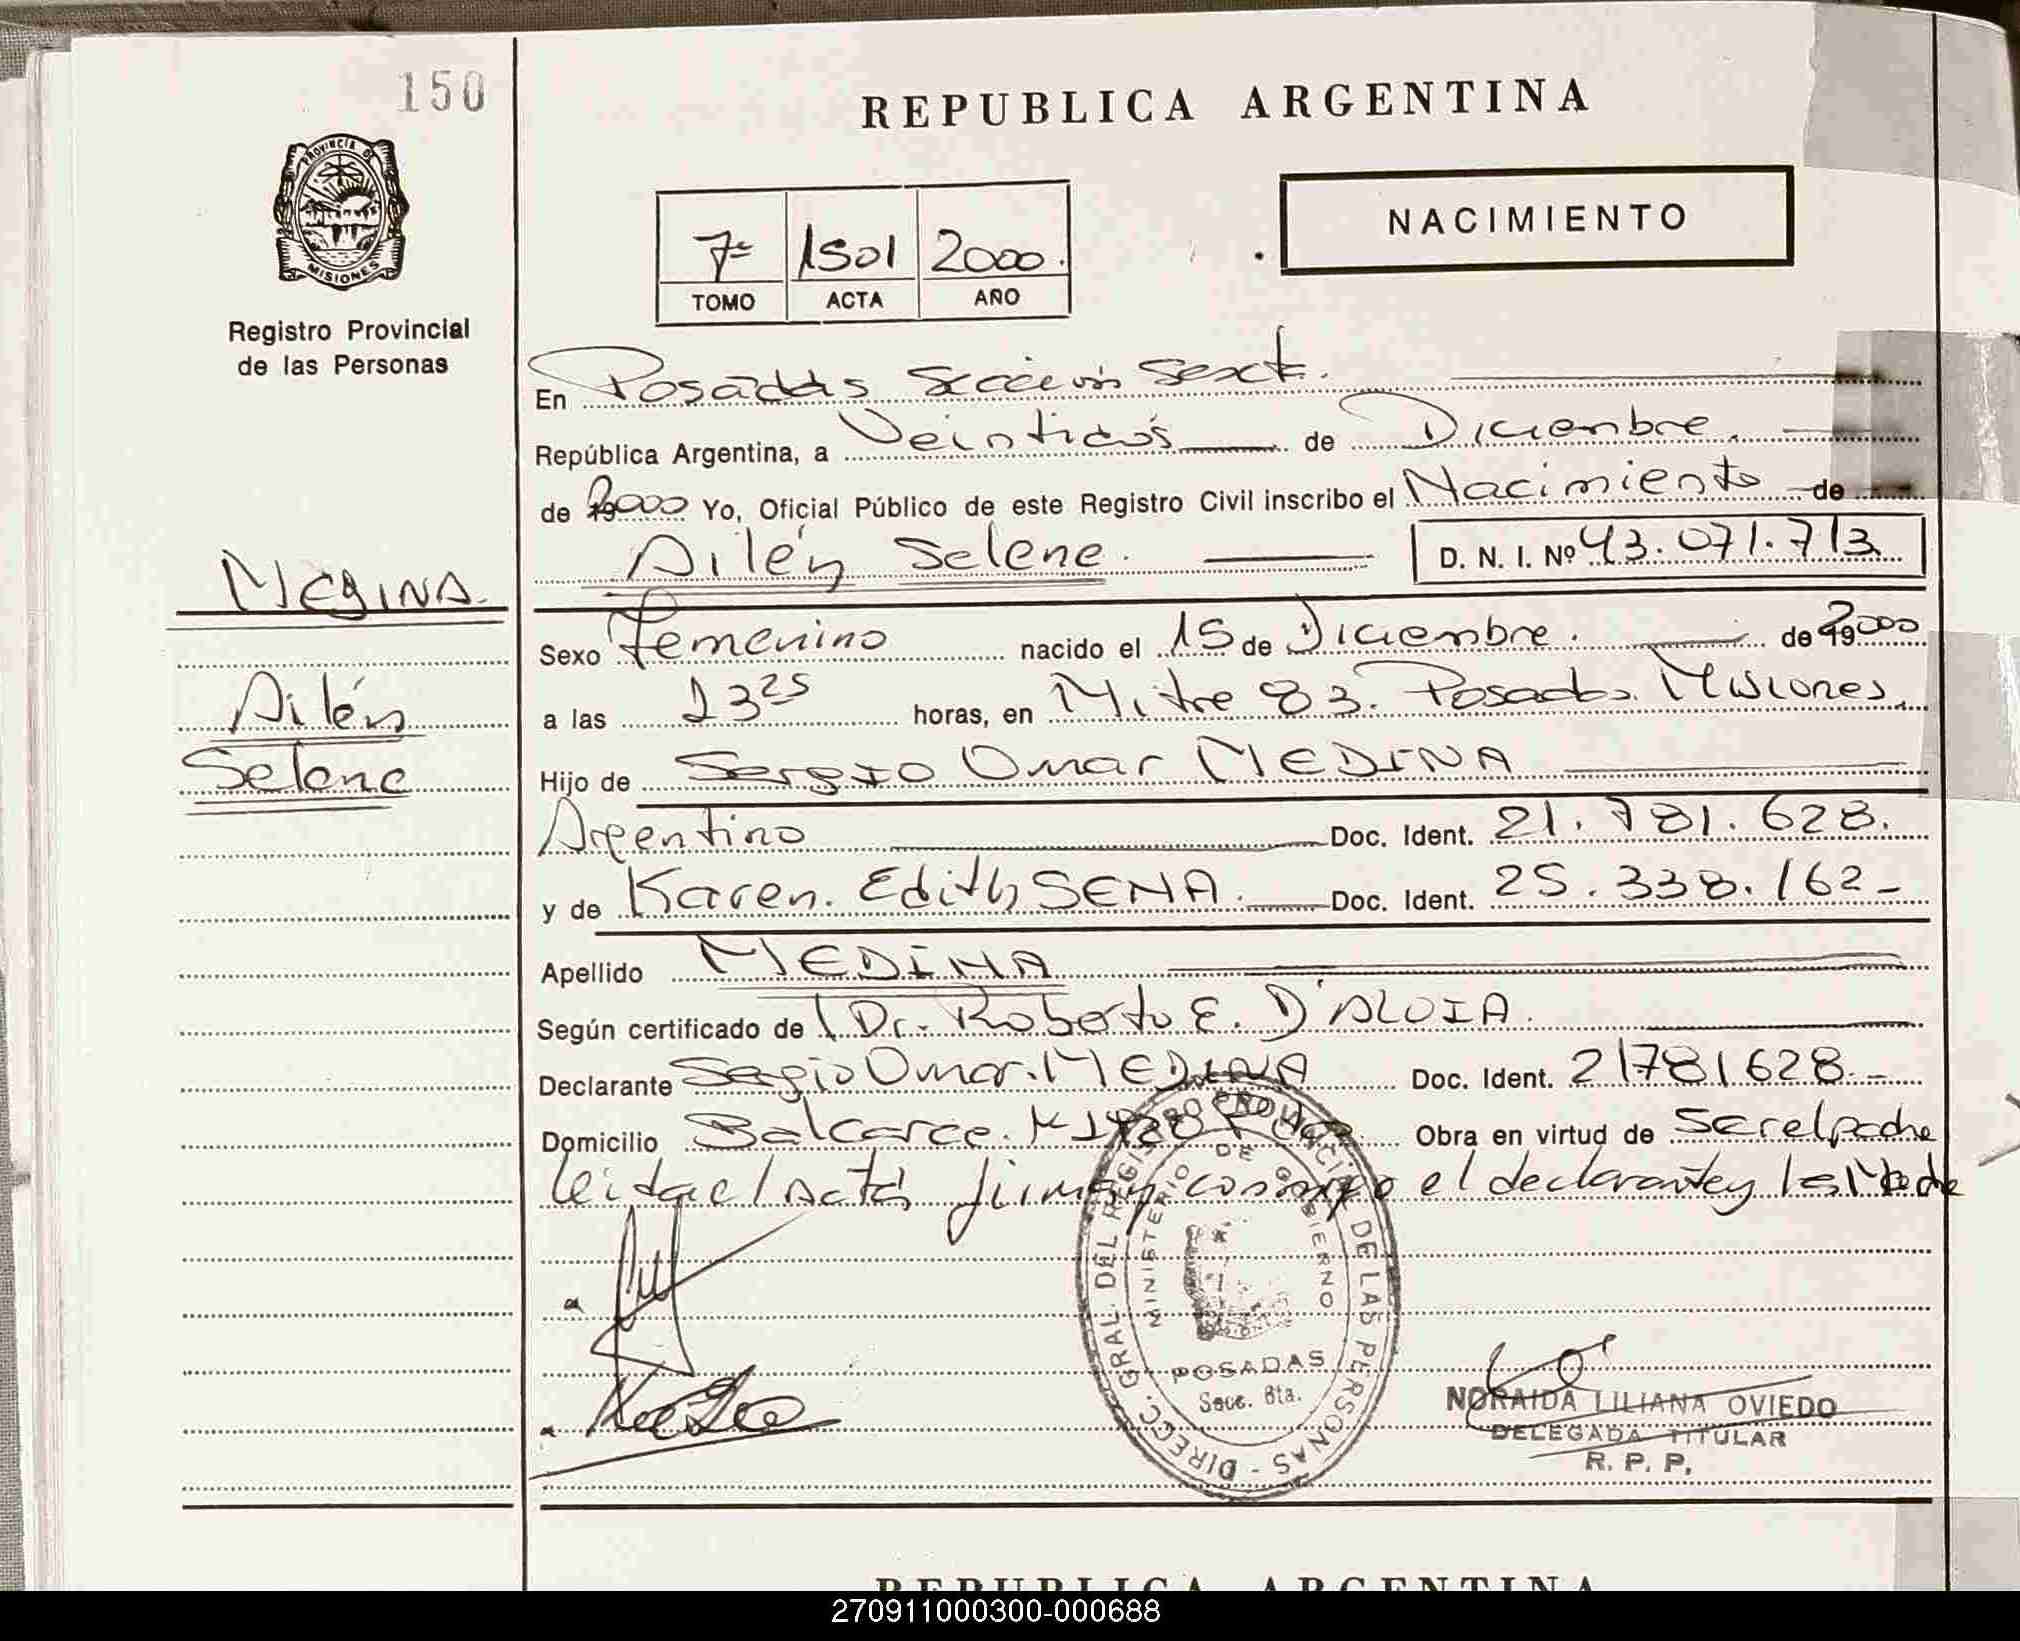 150
REPUBLICA ARGENTINA
PROVINCIA DE
MISIONES
Registro Provincial
de las Personas
NACIMIENTO
7º 1501 2000.
TOMO ACTA AÑO
En Posadas Sección Sexta.
República Argentina, a Veintidós de Diciembre.
de 19 2000 Yo, Oficial Público de este Registro Civil inscribo el Nacimiento de
Ailén Selene. D. N. I. Nº 43.071.713
MEDINA.
Sexo Femenino nacido el 15 de Diciembre. de 19 2000
Ailén
a las 23 25 horas, en Mitre 83. Posadas. Misiones.
Selene
Hijo de Sergio Omar MEDINA
Argentino Doc. Ident. 21.781.628.
y de Karen. Edith SENA. Doc. Ident. 25.338.162-
Apellido MEDINA
Según certificado de Dr. Roberto E. D'ALOIA.
Declarante Sergio Omar. MEDINA Doc. Ident. 21781628.-
Domicilio Balcarce. Obra en virtud de Ser el padre
leida el Acta firman conmigo el declarante y la Madre
DIRECC. GRAL. DEL REGISTRO PROVINCIAL DE LAS PERSONAS -
MINISTERIO DE GOBIERNO
POSADAS
Secc. 6ta.
NORAIDA LILIANA OVIEDO
DELEGADA TITULAR
R. P. P.
REPUBLICA ARGENTINA
270911000300-000688